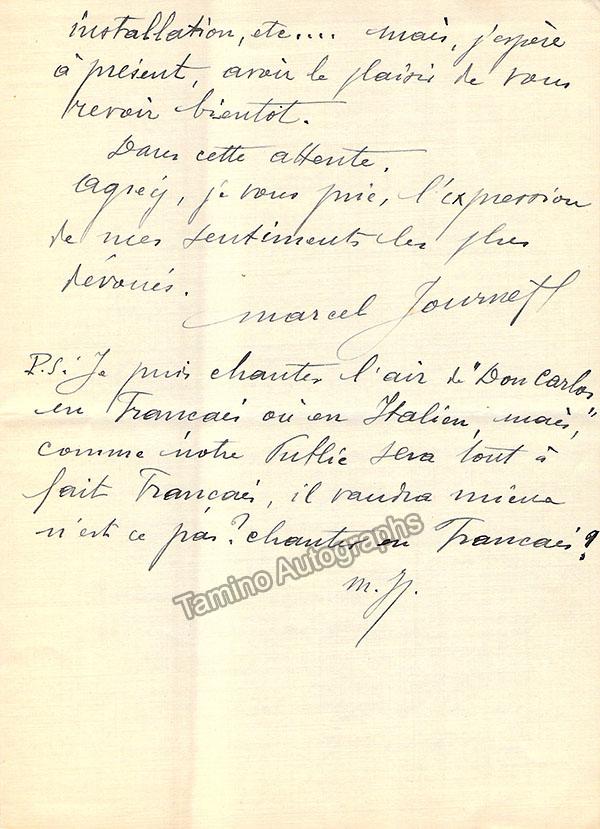 installation, etc.... mais, j'espère
à présent, avoir le plaisir de vous
revoir bientôt.
Dans cette attente,
Agréez, je vous prie, l'expression
de mes sentiments les plus
dévoués.
Marcel Journet
P.S: Je puis chanter l'air de "Don Carlos"
en Francais ou en Italien, mais,
comme notre Public sera tout à
fait Francais, il vaudra mieux
n'est ce pas? chanter en Francais?
M. J.
Tamino Autographs